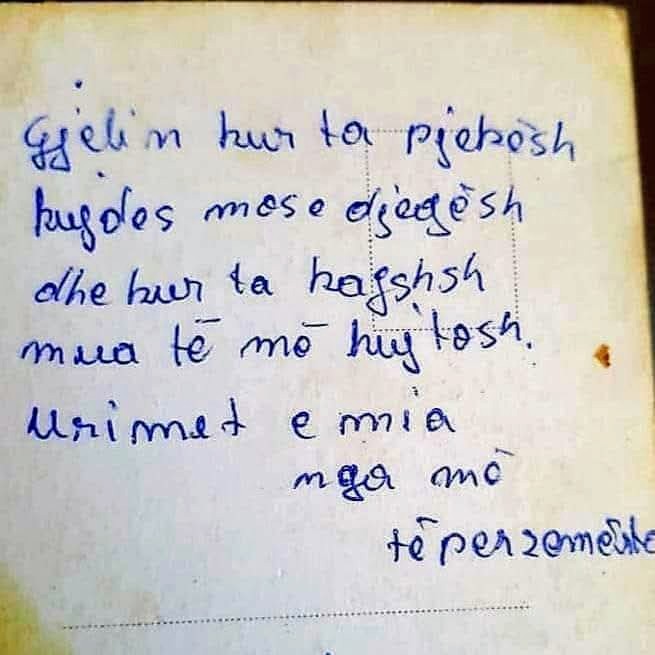 Gjelin kur ta pjekësh
kujdes mose djegësh
dhe kur ta kafshsh
mua të më kujtosh.
Urimet e mia
nga më
të perzemërte